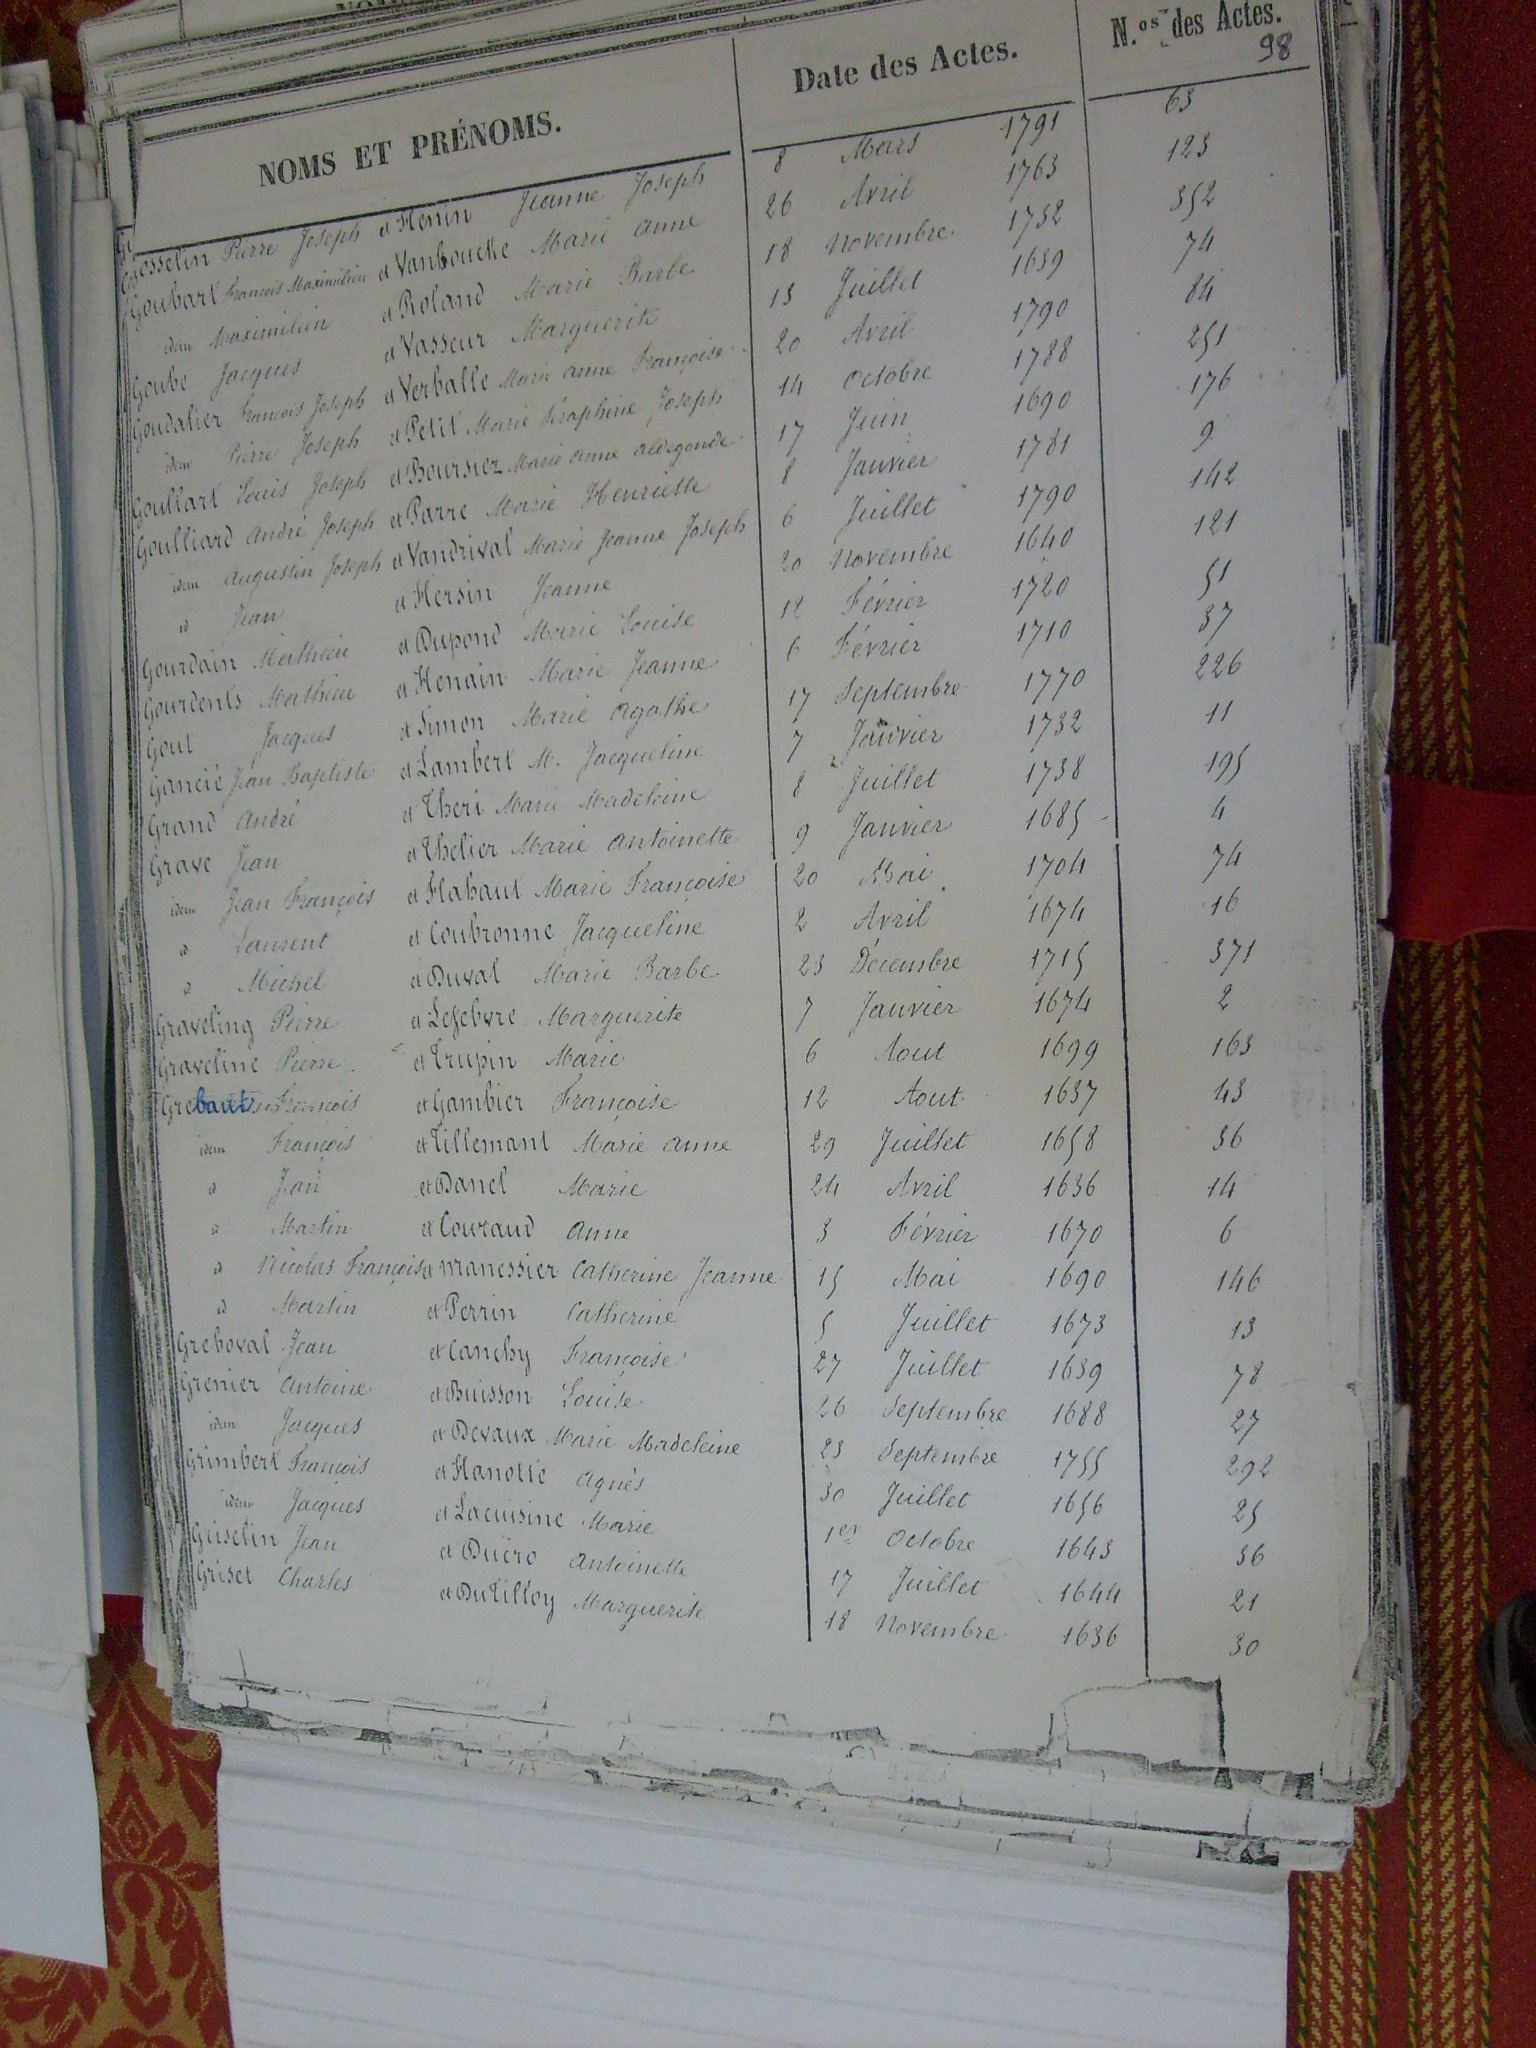 NOMS ET PRÉNOMS. Date des Actes. N.os des Actes.
98
Gosselin Pierre Joseph et Henin Jeanne Joseph 8 Mars 1791 63
Goubart François Maximilien et Vanboucke Marie Anne 26 Avril 1763 123
idem Maximilien et Roland Marie Barbe 18 Novembre 1732 352
Goube Jacques et Vasseur Marguerite 13 Juillet 1639 74
Goudalier François Joseph et Verballe Marie Anne Françoise 20 Avril 1790 84
idem Pierre Joseph et Petit Marie Séraphine Joseph 14 Octobre 1788 251
Goullart Louis Joseph et Boursiez Marie Anne Aldegonde 17 Juin 1690 176
Goulliard André Joseph et Parre Marie Henriette 8 Janvier 1781 9
idem Augustin Joseph et Vandrival Marie Jeanne Joseph 6 Juillet 1790 142
id Jean et Hersin Jeanne 20 Novembre 1640 121
Gourdain Mathieu et Dupond Marie Louise 12 Février 1720 51
Gourdents Mathieu et Henain Marie Jeanne 6 Février 1710 37
Gout Jacques et Simon Marie Agathe 17 Septembre 1770 226
Gancié Jean Baptiste et Lambert M. Jacqueline 7 Janvier 1732 11
Grand André et Theri Marie Madeleine 8 Juillet 1738 195
Grave Jean et Thelier Marie Antoinette 9 Janvier 1685 4
idem Jean François et Flahaut Marie Françoise 20 Mai 1704 74
id Laurent et Coubronne Jacqueline 2 Avril 1674 16
id Michel et Duval Marie Barbe 23 Décembre 1715 371
Graveling Pierre et Lefebvre Marguerite 7 Janvier 1674 2
Graveline Pierre et Trupin Marie 6 Aout 1699 163
Grebaut François et Gambier Françoise 12 Aout 1637 43
idem François et Tillemant Marie Anne 29 Juillet 1658 36
id Jean et Danel Marie 24 Avril 1636 14
id Martin et Couraud Anne 3 Février 1670 6
id Nicolas François et Manessier Catherine Jeanne 15 Mai 1690 146
id Martin et Perrin Catherine 5 Juillet 1673 13
Greboval Jean et Canchy Françoise 27 Juillet 1639 78
Grenier Antoine et Buisson Louise 26 Septembre 1688 27
idem Jacques et Devaux Marie Madeleine 23 Septembre 1755 292
Grimbert François et Hanotte Agnès 30 Juillet 1656 25
idem Jacques et Lacuisine Marie 1er Octobre 1643 36
Griselin Jean et Ducro Antoinette 17 Juillet 1644 21
Griset Charles et DuTilloy Marguerite 18 Novembre 1636 30